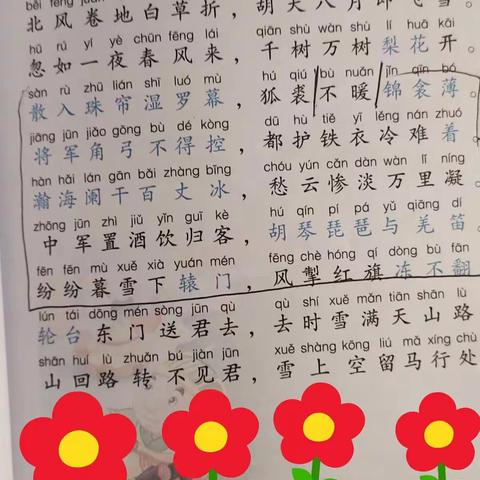 北风卷地白草折，胡天八月即飞雪。
hū rú yí yè chūn fēng lái qiān shù wàn shù lí huā kāi
忽如一夜春风来，千树万树梨花开。
sàn rù zhū lián shī luó mù hú qiú bù nuǎn jǐn qīn bó
散入珠帘湿罗幕，狐裘不暖锦衾薄。
jiāng jūn jiǎo gōng bù dé kòng dū hù tiě yī lěng nán zhuó
将军角弓不得控，都护铁衣冷难着。
hàn hǎi lán gān bǎi zhàng bīng chóu yún cǎn dàn wàn lǐ níng
瀚海阑干百丈冰，愁云惨淡万里凝。
zhōng jūn zhì jiǔ yǐn guī kè hú qín pí pá yǔ qiāng dí
中军置酒饮归客，胡琴琵琶与羌笛。
fēn fēn mù xuě xià yuán mén fēng chè hóng qí dòng bù fān
纷纷暮雪下辕门，风掣红旗冻不翻
lún tái dōng mén sòng jūn qù qù shí xuě mǎn tiān shān lù
轮台东门送君去，去时雪满天山路
shān huí lù zhuǎn bú jiàn jūn xuě shàng kōng liú mǎ xíng chù
山回路转不见君，雪上空留马行处